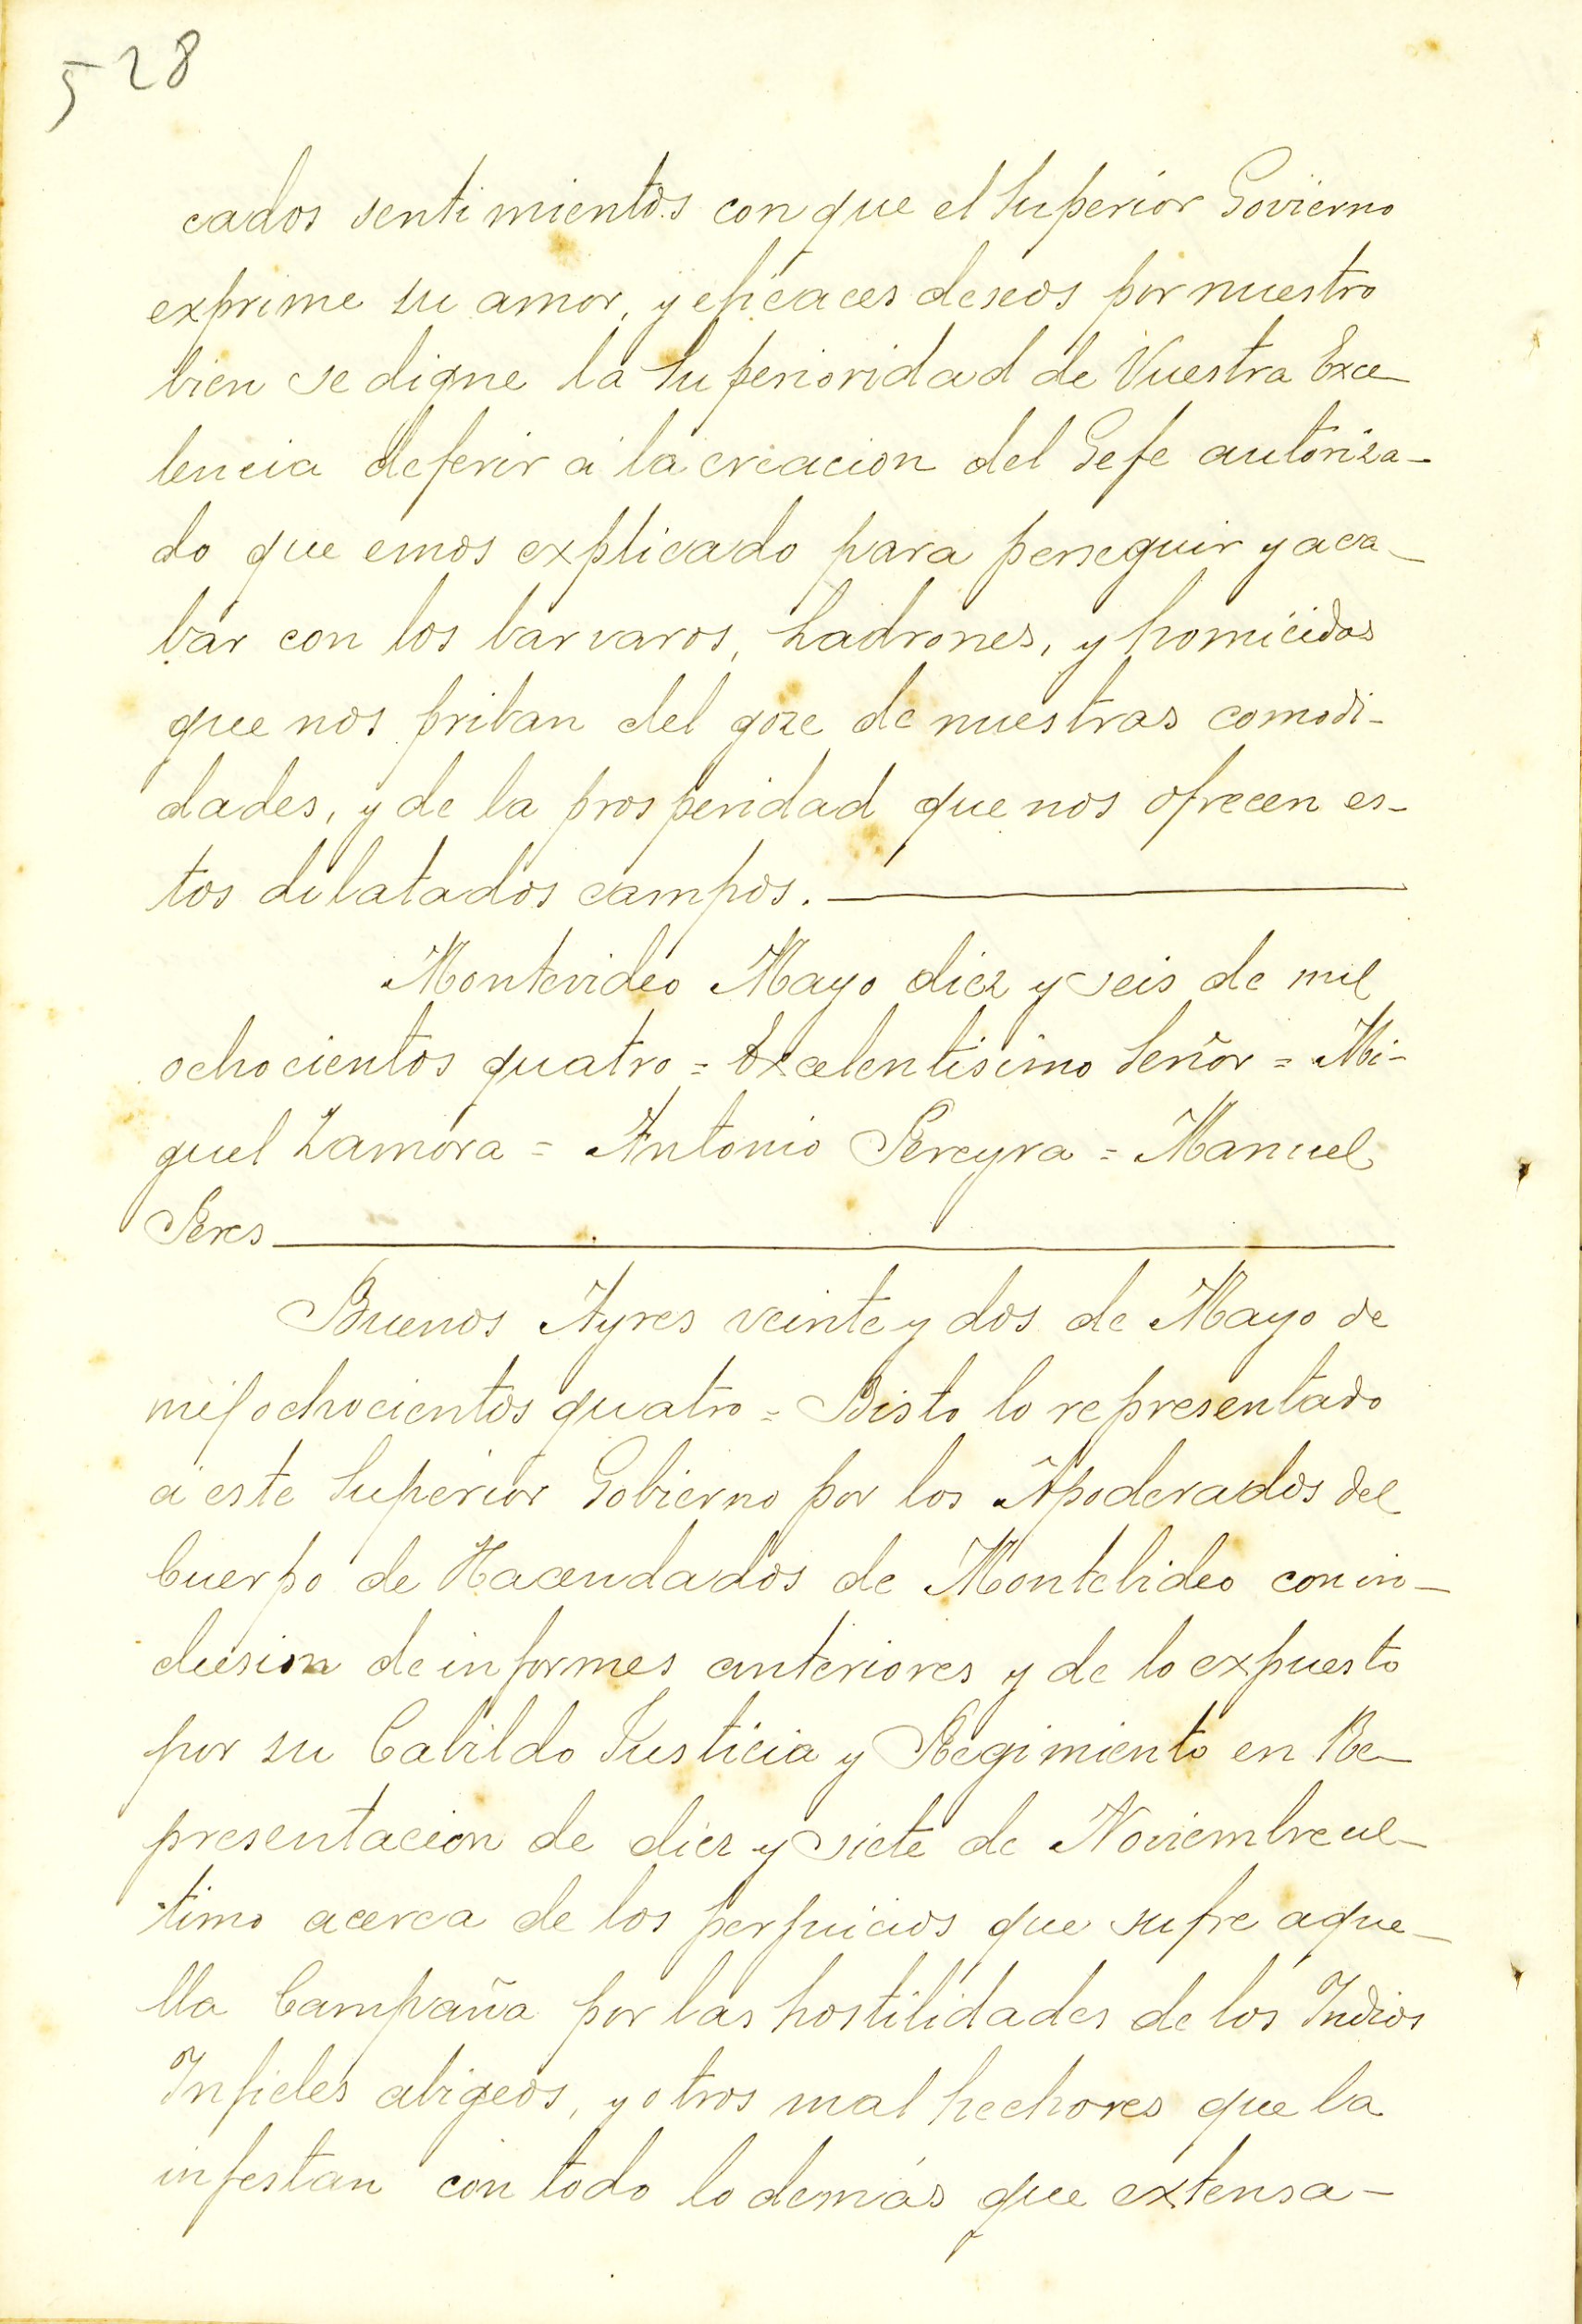 528
cados sentimientos con que el Superior Govierno
exprime su amor, y eficaces deseos por nuestro
bien se digne la Superioridad de Vuestra Exce-
lencia deferir á la creacion del Gefe autoriza-
do que emos explicado para perseguir y aca-
bar con los barvaros, Ladrones, y homicidas
que nos priban del goze de nuestras comodi-
dades, y de la prosperidad que nos ofrecen es-
tos dilatados campos.
Montevideo Mayo diez y seis de mil
ochocientos quatro = Excelentisimo Señor = Mi-
guel Zamora = Antonio Pereyra = Manuel
Peres
Buenos Ayres veinte y dos de Mayo de
mil ochocientos quatro = Bisto lo representado
á este Superior Gobierno por los Apoderados del
Cuerpo de Hacendados de Montebideo con in-
clusion de informes anteriores y de lo expuesto
por su Cabildo Justicia y Regimiento en Re-
presentacion de diez y siete de Noviembre ul-
timo acerca de los perjuicios que sufre aque-
lla Campaña por las hostilidades de los Indios
Infieles abigeos, y otros mal hechores que la
infestan con todo lo demás que extensa-